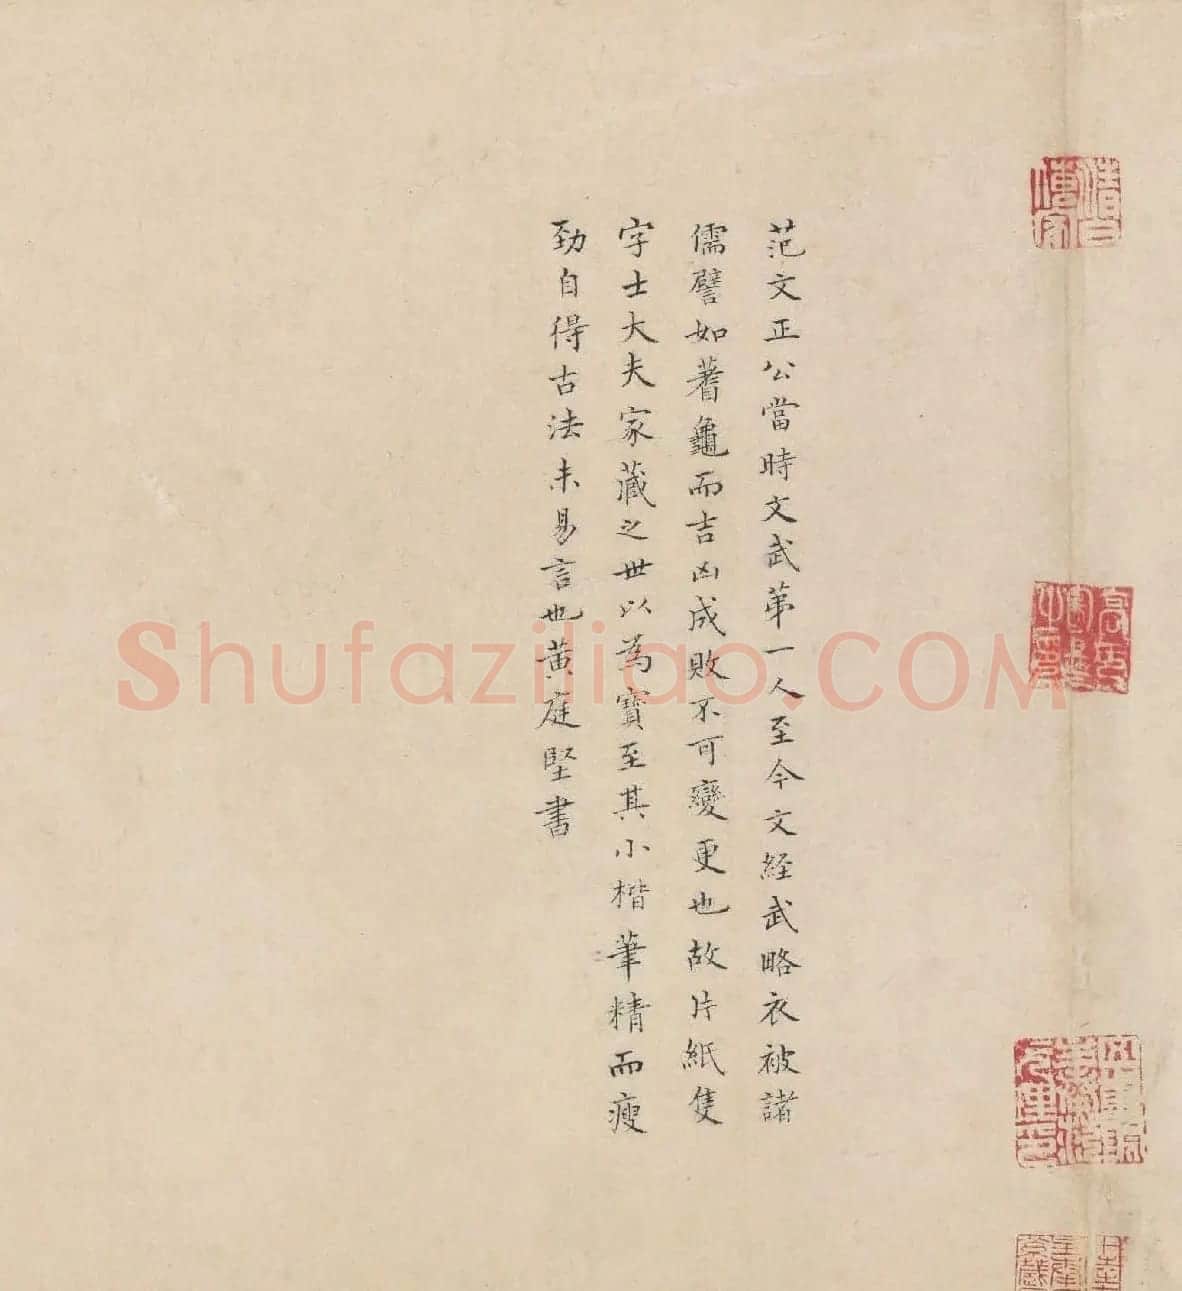 范文正公當時文武第一人至今文経武略衣被諸
儒譬如蓍龜而吉凶成敗不可變更也故片紙隻
字士大夫家藏之世以為寶至其小楷筆精而瘦
勁自得古法未易言也黃庭堅書
Shufaziliao.COM